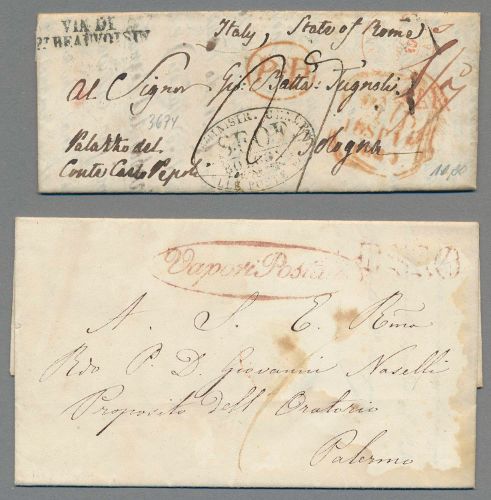 VIA DI
Pt. BEAUVOISIN
Italy, State of Rome
P.F.
Al Signor Gio: Batta: Tugnoli
3674
Palazzo del
Conte Carlo Pepoli
Bologna
10,80
Vapori Postali
A. S. E. Rma
Rdo P. D. Giovanni Naselli
Proposito dell' Oratorio
Palermo